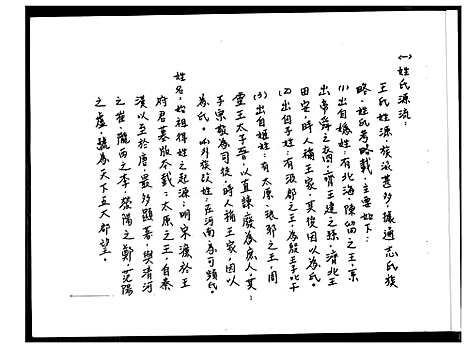 (一)姓氏源流：
王氏姓源族派甚多，據通志氏族
略、姓氏考略載，主要如下：
(1)出自媯姓：有北海、陳留之王，系
出帝舜之裔，齊王建之孫，濟北王
田安，時人稱王家，其後因以為氏。
(2)出自子姓：有汲郡之王，為殷王子比干
(3)出自姬姓：有太原、琅邪之王，周
靈王太子晉，以直諫廢為庶人，其
子宗敬為司徒，時人稱王家，因以
為氏。(4)外族改姓：在河南為可頻氏。
姓名，始祖得姓之起源：明宋濂於王
府君墓版本載：太原之王，自秦
漢以至於唐，最多顯著，與清河
之崔，隴西之李，滎陽之鄭，范陽
之盧，號為天下五大郡望。